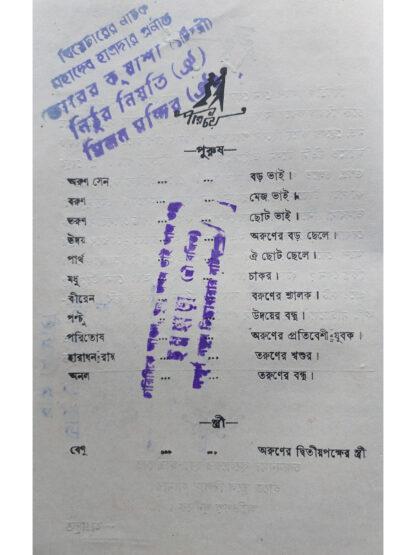 থিয়েটারের নাটক
মহাদেব হালদার প্রণীত
ভোরের কুয়াশা
নিঠুর নিয়তি (ঐ)
মিলন মন্দির (ঐ)
পরিচয়
—পুরুষ—
অরুণ সেন ... ... বড় ভাই।
বরুণ ... মেজ ভাই।
তরুণ ... ছোট ভাই।
উদয় ... অরুণের বড় ছেলে।
পার্থ ... ঐ ছোট ছেলে।
মধু ... চাকর।
বীরেন ... বরুণের শ্যালক।
পল্টু ... উদয়ের বন্ধু।
পরিতোষ ... অরুণের প্রতিবেশী যুবক।
হারাধন রায় ... তরুণের শ্বশুর।
অনল ... তরুণের বন্ধু।
—স্ত্রী—
রেণু ... ... অরুণের দ্বিতীয়পক্ষের স্ত্রী